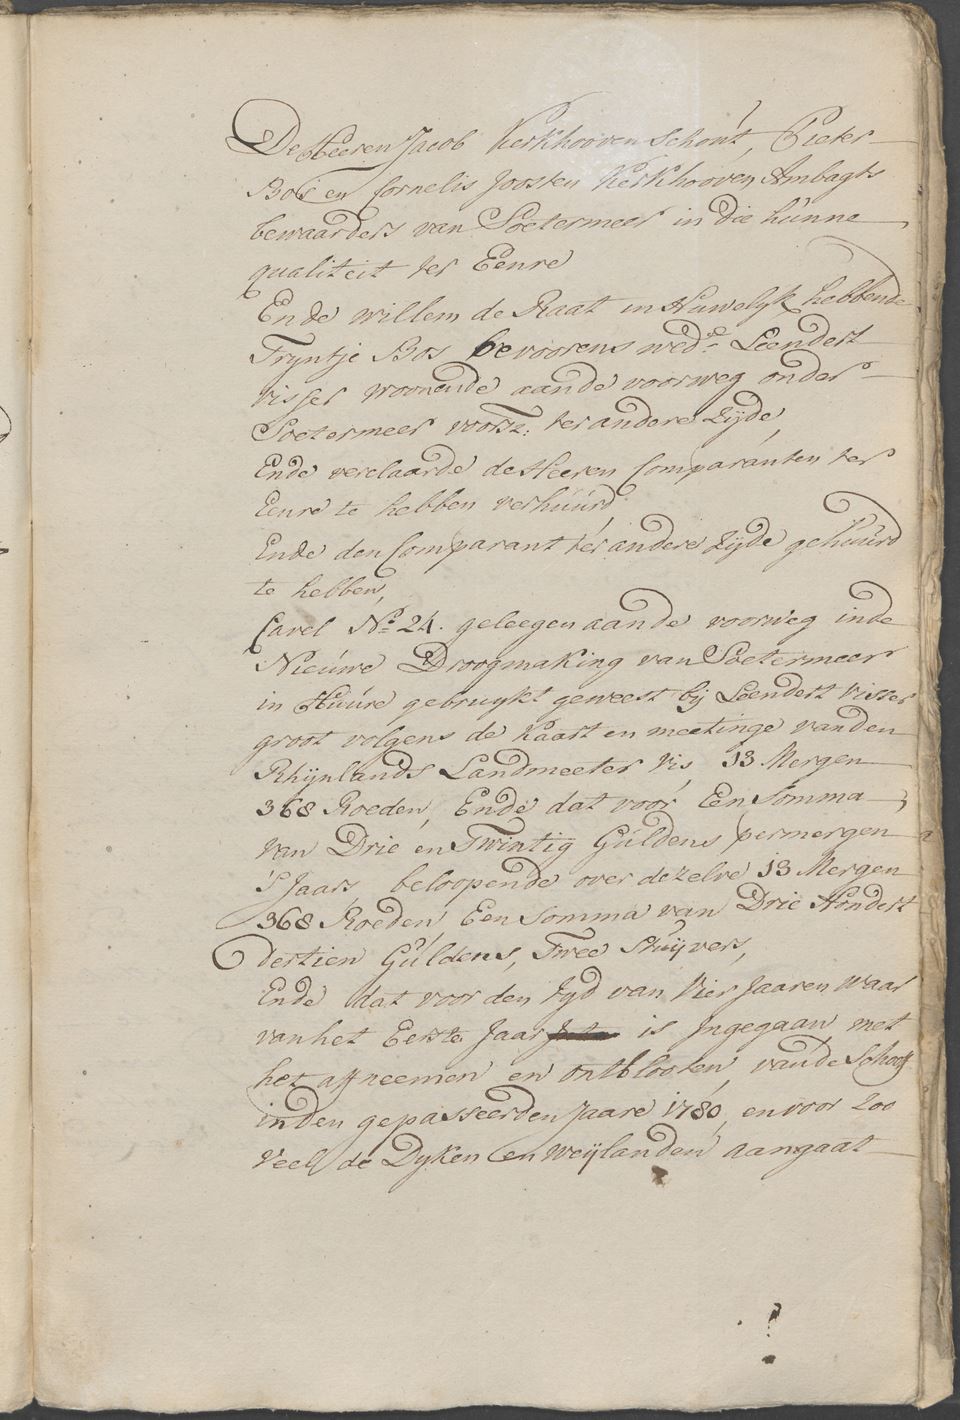 De Heeren Jacob Kerkhooven Schout, Pieter
Bos en Cornelis Joosten Kerkhooven Ambagts
bewaarders van Soetermeer in die hunne
qualiteit ter Eenre
Ende Willem de Raat in Huwelyk hebbende
Tryntje Bos bevoorens wed:e Leendert
visser woonende aande voorweg onder
Soetermeer voorsz: ter andere Zijde,
Ende verclaarde de Heeren Comparanten ter
Eenre te hebben verhuurd
Ende den Comparant ter andere Zijde gehuurd
te hebben,
Cavel No. 24. geleegen aande voorweg inde
Nieuwe Droogmaking van Soetermeer
in Huure gebruykt geweest bij Leendert Visser
groot volgens de Kaart en meetinge vanden
Rhijnlands Landmeeter Vis, 13 Mergen
368 Roeden, Ende dat voor Een Somma
van Drie en Twintig Guldens per mergen
'S Jaars, beloopende over dezelve 13 Mergen
368 Roeden Een Somma van Drie Hondert
dertien Guldens, Twee Stuijvers,
Ende dat voor den tyd van Vier Jaaren waar
van het Eerste Jaar is Ingegaan met
het afneemen en ontblooten vande Schoof
inden gepasseerden Jaare 1780, en voor Zoo
Veel de Dyken en Weijlanden aangaat